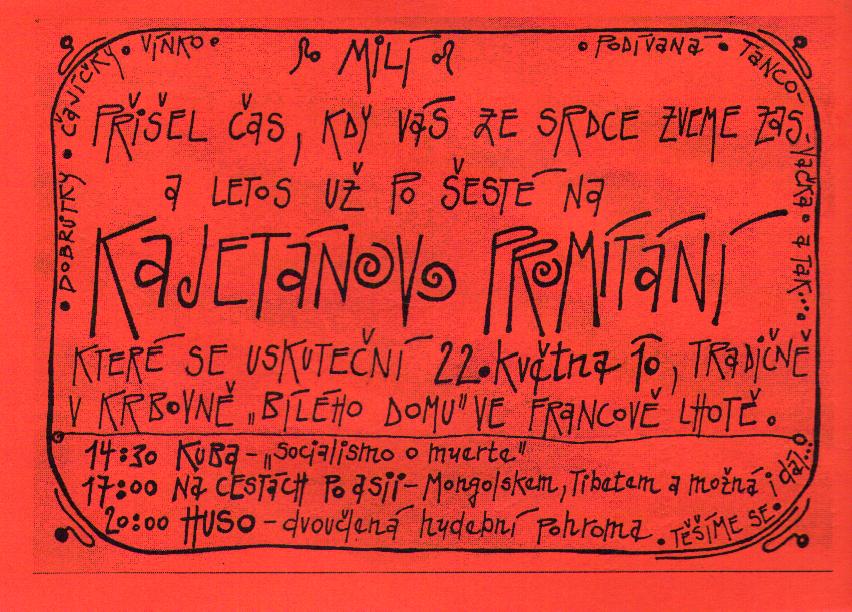 MILÍ
PŘIŠEL ČAS, KDY VÁS ZE SRDCE ZVEME ZAS
A LETOS UŽ PO ŠESTÉ NA
KAJETÁNOVO PROMÍTÁNÍ
KTERÉ SE USKUTEČNÍ 22. května 10, TRADIČNĚ
V KRBOVNĚ „BÍLÉHO DOMU" VE FRANCOVĚ LHOTĚ.
14:30 KUBA - „socialismo o muerte"
17:00 NA CESTÁCH PO ASII - Mongolskem, Tibetem a možná i dál...
20:00 HUSO - dvoučlená hudební pohroma
• DOBRŮTKY • ČAVÍČKY • VÍNKO •
• PODÍVANÁ • TANCO-VAČKA • A TAK...
• TĚŠÍME SE •